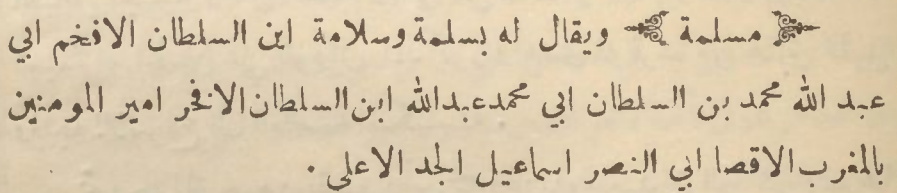 مسلمة ويقال له بسلمة وسلامة ابن السلطان الافخم ابي
عبد الله محمد بن السلطان ابي محمد عبد الله ابن السلطان الافخر امير المومنين
بالمغرب الاقصا ابي النصر اسماعيل الجد الاعلى ٠